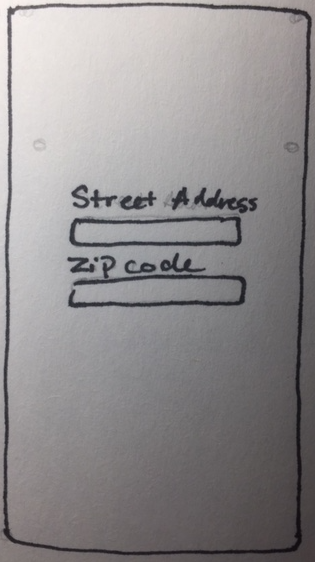 Street Address
Zip code